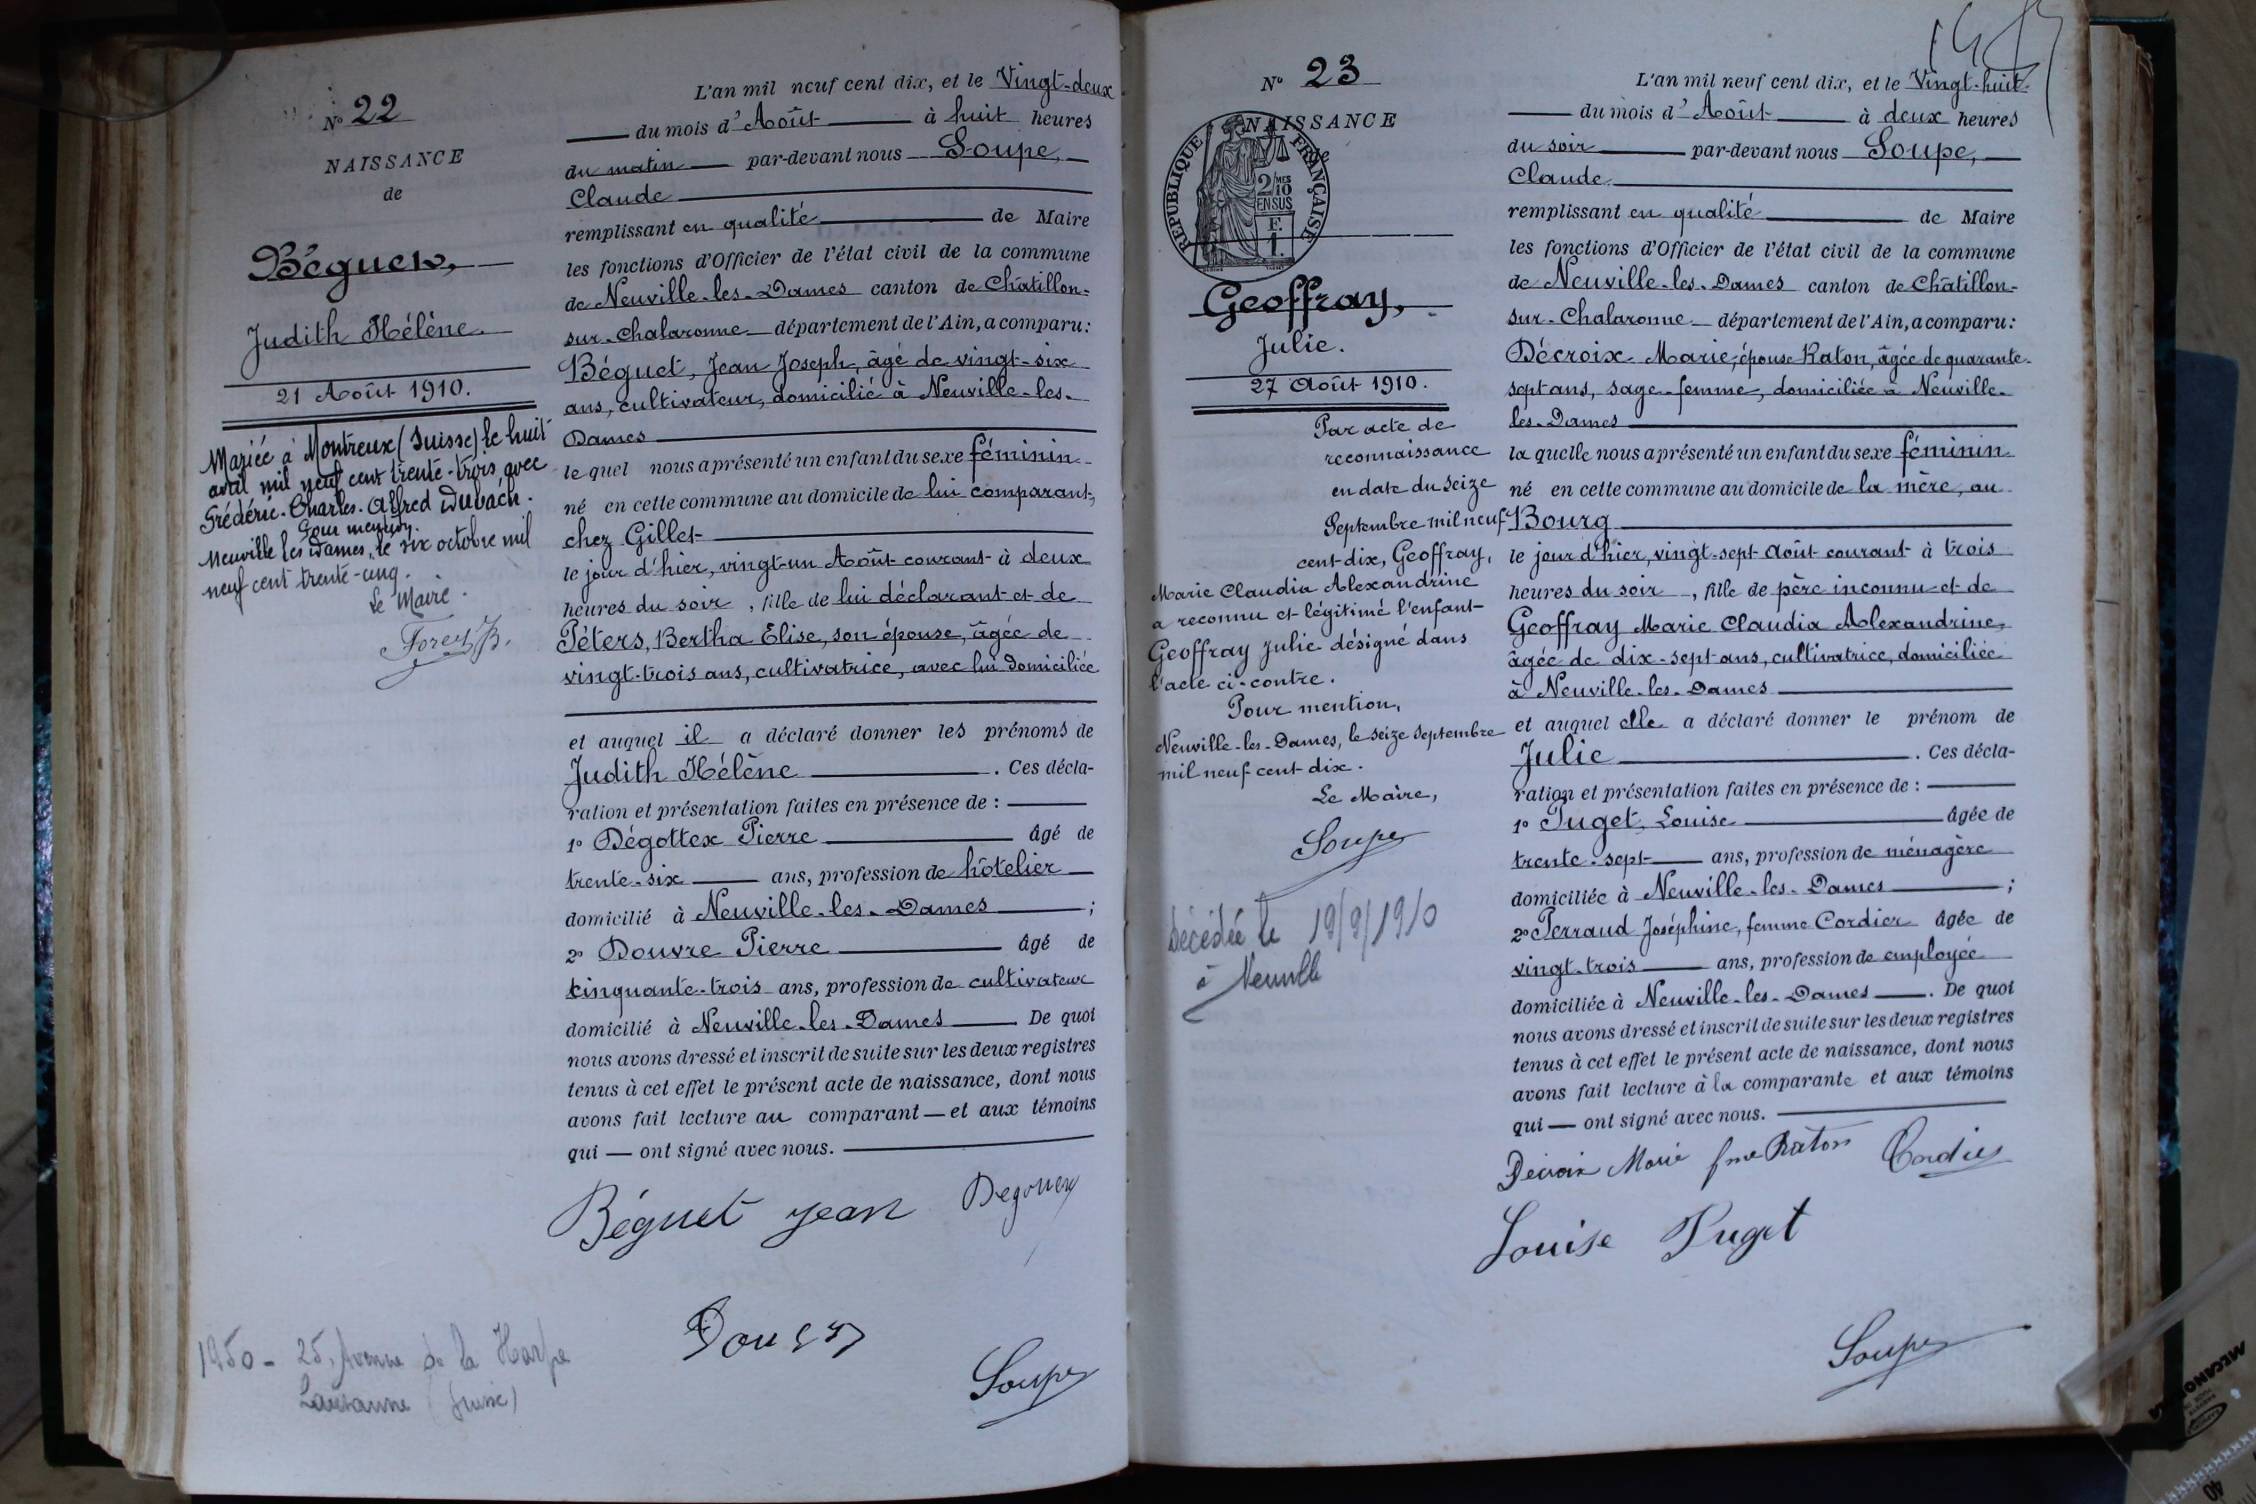 N° 22
NAISSANCE
de
Béguet,
Judith Hélène.
21 Août 1910.
Mariée à Montreux (Suisse) le huit
avril mil neuf cent trente-trois, avec
Frédéric-Charles-Alfred Dubach.
Pour mention.
Neuville les Dames, le six octobre mil
neuf cent trente-cinq.
Le Maire.
1950 - 25, Avenue de la Harpe
Lausanne (Suisse)
L'an mil neuf cent dix, et le Vingt-deux
du mois d'Août à huit heures
du matin par-devant nous Soupe,
Claude
remplissant en qualité de Maire
les fonctions d'Officier de l'état civil de la commune
de Neuville-les-Dames canton de Châtillon-
sur-Chalaronne département de l'Ain, a comparu:
Béguet, Jean Joseph, âgé de vingt-six
ans, cultivateur, domicilié à Neuville-les-
Dames
le quel nous a présenté un enfant du sexe féminin
né en cette commune au domicile de lui comparant,
chez Gillet
le jour d'hier, vingt-un Août courant à deux
heures du soir, fille de lui déclarant et de
Péters, Bertha Elise, son épouse, âgée de
vingt-trois ans, cultivatrice, avec lui domiciliée
et auquel il a déclaré donner les prénoms de
Judith Hélène. Ces décla-
ration et présentation faites en présence de :
1° Dégottex Pierre âgé de
trente-six ans, profession de hôtelier
domicilié à Neuville-les-Dames ;
2° Douvre Pierre âgé de
cinquante-trois ans, profession de cultivateur
domicilié à Neuville-les-Dames. De quoi
nous avons dressé et inscrit de suite sur les deux registres
tenus à cet effet le présent acte de naissance, dont nous
avons fait lecture au comparant — et aux témoins
qui — ont signé avec nous.
Béguet jean Degottex
Soupe
N° 23
NAISSANCE
de
REPUBLIQUE FRANÇAISE
2/MES
10
EN SUS
F.
1.
Geoffray,
Julie.
27 Août 1910.
Par acte de
reconnaissance
en date du seize
Septembre mil neuf
cent-dix, Geoffray,
Marie Claudia Alexandrine
a reconnu et légitimé l'enfant
Geoffray Julie désigné dans
l'acte ci-contre.
Pour mention,
Neuville-les-Dames, le seize septembre
mil neuf cent dix.
Le Maire,
Soupe
Décédée le 19/9/1910
à Neuville
L'an mil neuf cent dix, et le Vingt-huit
du mois d'Août à deux heures
du soir par-devant nous Soupe,
Claude
remplissant en qualité de Maire
les fonctions d'Officier de l'état civil de la commune
de Neuville-les-Dames canton de Châtillon-
sur-Chalaronne département de l'Ain, a comparu:
Décroix Marie, épouse Raton, âgée de quarante-
sept ans, sage-femme, domiciliée à Neuville-
les-Dames
la quelle nous a présenté un enfant du sexe féminin
né en cette commune au domicile de la mère, au
Bourg
le jour d'hier, vingt-sept Août courant à trois
heures du soir, fille de père inconnu et de
Geoffray Marie Claudia Alexandrine,
âgée de dix-sept ans, cultivatrice, domiciliée
à Neuville-les-Dames
et auquel elle a déclaré donner le prénom de
Julie. Ces décla-
ration et présentation faites en présence de :
1° Puget, Louise âgée de
trente-sept ans, profession de ménagère
domiciliée à Neuville-les-Dames ;
2° Perraud Joséphine, femme Cordier âgée de
vingt-trois ans, profession de employée
domiciliée à Neuville-les-Dames. De quoi
nous avons dressé et inscrit de suite sur les deux registres
tenus à cet effet le présent acte de naissance, dont nous
avons fait lecture à la comparante et aux témoins
qui — ont signé avec nous.
Décroix Marie fme Raton Cordier
Louise Puget
Soupe
40